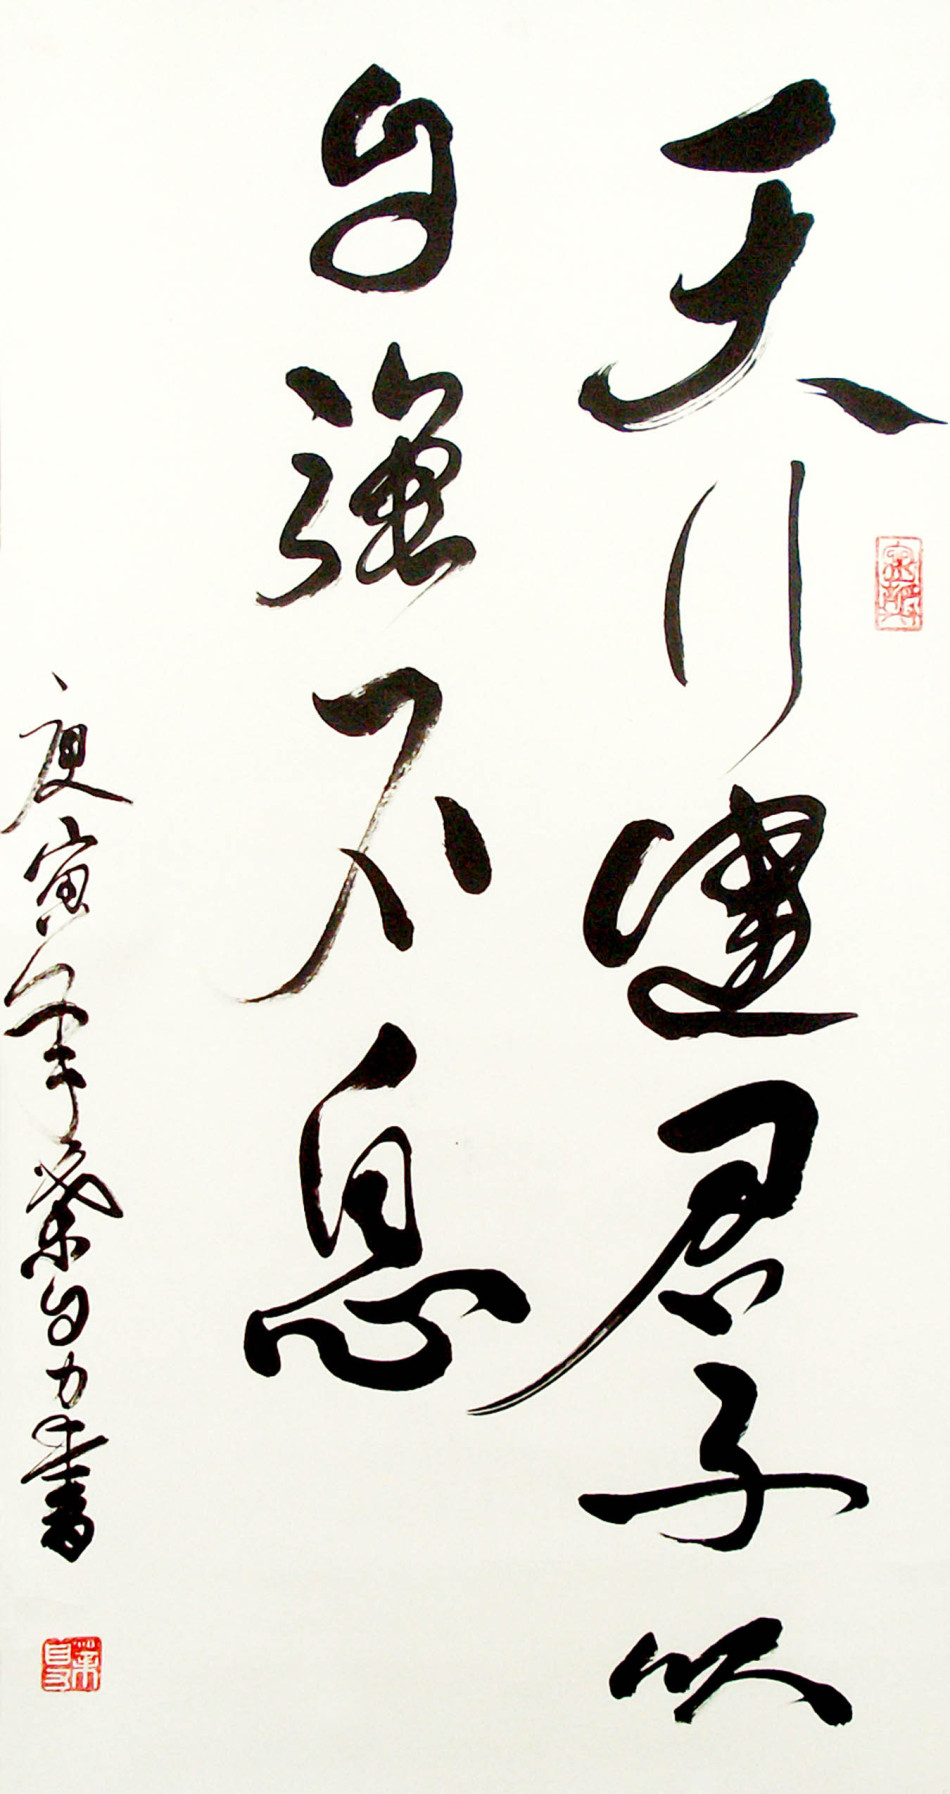 天行健君子以
自強不息
庚寅年葉自力書
葉自力